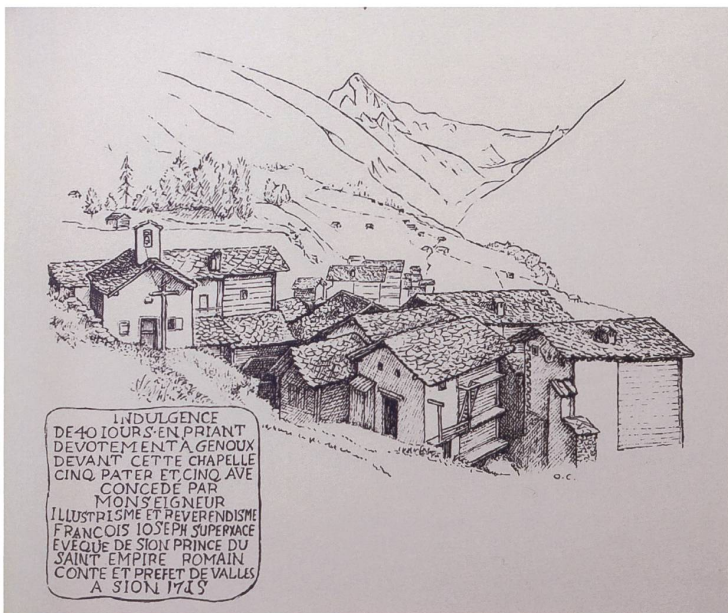 INDULGENCE
DE 40 IOURS·EN PRIANT
DEVOTEMENT A GENOUX
DEVANT CETTE CHAPELLE
CINQ PATER ET CINQ AVE
CONCEDE PAR
MONSEIGNEUR
ILLUSTRISME ET REVERENDISME
FRANCOIS IOSEPH SUPERXACE
EVEQUE DE SION PRINCE DU
SAINT EMPIRE ROMAIN
CONTE ET PREFET DE VALLES
A SION
O.C.